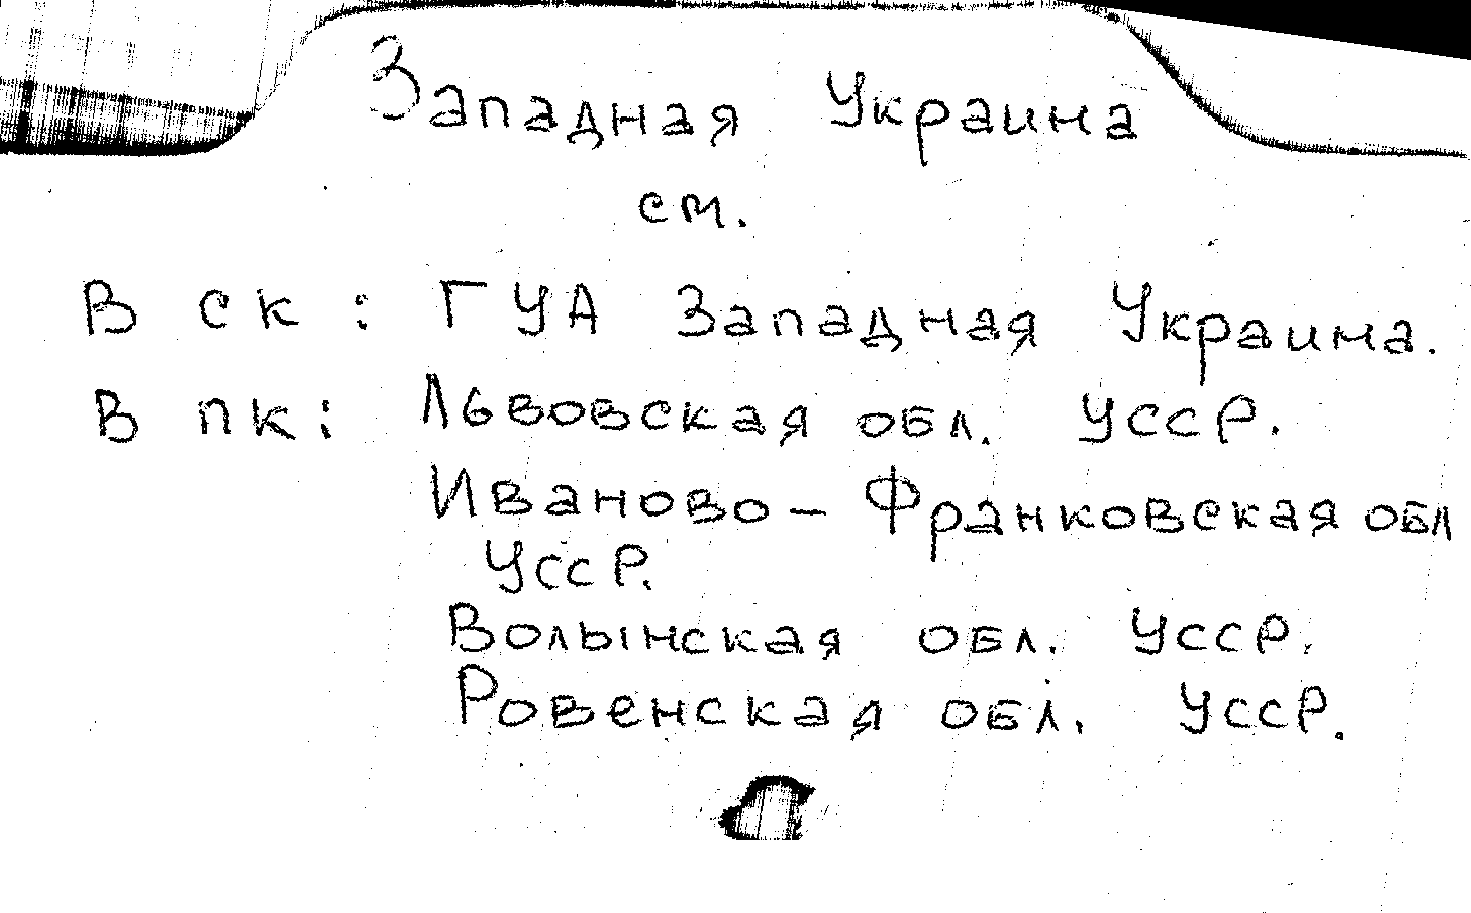 Западная Украина
см.
В ск: ГУА Западная Украина.
В пк: Львовская обл. УССР.
Иваново-Франковская обл
УССР.
Волынская обл. УССР.
Ровенская обл. УССР.